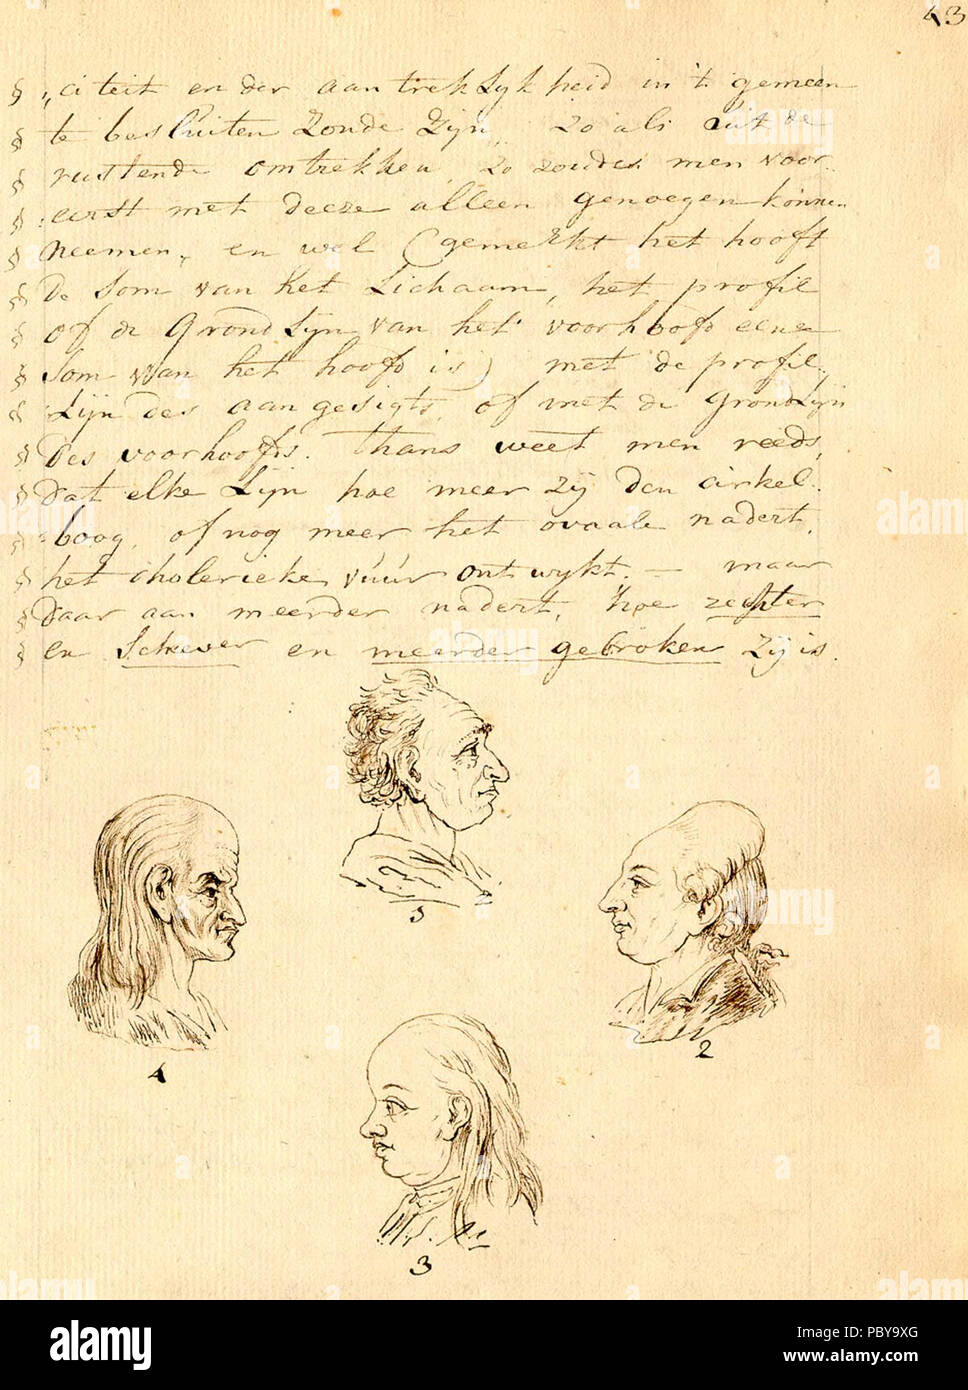 43
„citeit en der aantreklykheid in 't gemeen
te besluiten zoude zyn, zo als uit de
rustende omtrekken, zo zoude men voor-
eerst met deeze alleen genoegen konnen
neemen, en wel (gemerkt het hooft
de Som van het Lichaam, het profil
of de GrondLyn van het voorhoofd eene
Som van het hoofd is) met de profil-
Lijn des aangesigts, of met de GrondLyn
des voorhoofts. Thans weet men reeds,
dat elke Lijn hoe meer zij den cirkel-
boog, of nog meer het ovaale nadert,
het cholerieke vúúr ontwykt. — maar
daar aan meerder nadert, hoe
en Schever en meerder gebroken zij is.
5
4
2
3
alamy
Image ID: PBY9XG
www.alamy.com